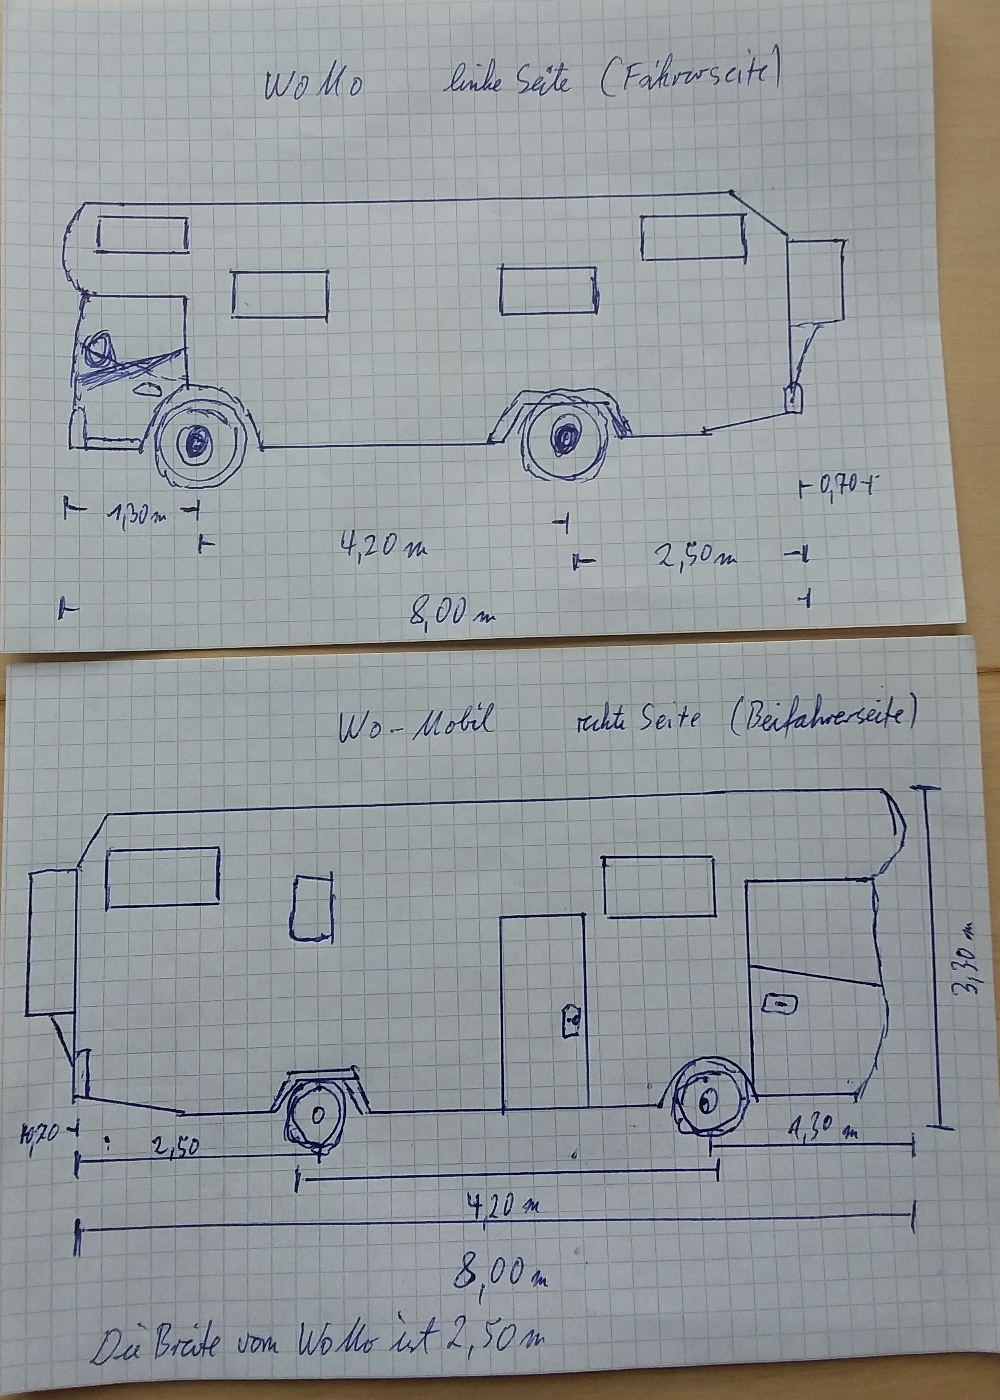 WoMo linke Seite (Fahrerseite)
0,70
1,30 m
4,20 m
2,50 m
8,00 m
Wo-Mobil rechte Seite (Beifahrerseite)
3,30 m
0,70
2,50
1,30 m
4,20 m
8,00 m
Die Breite vom WoMo ist 2,50 m